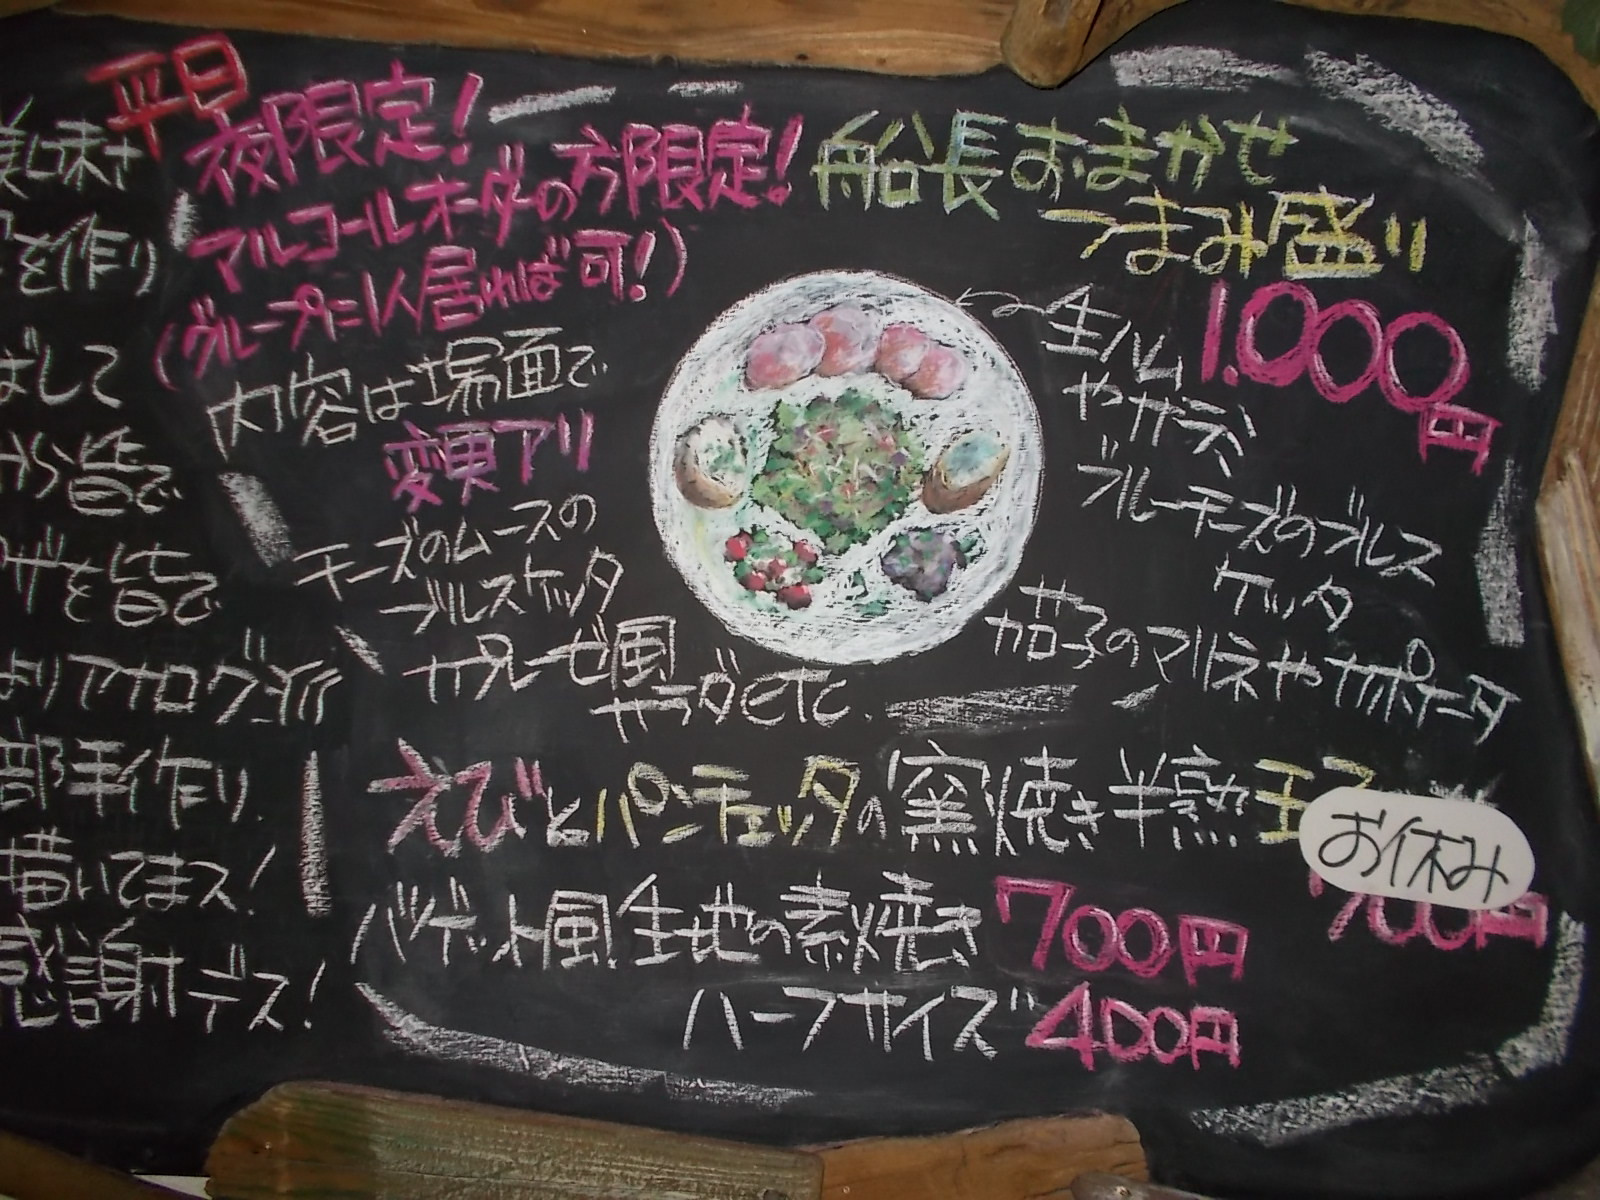 平日
夜限定!
アルコールオーダーの方限定!
(グループに1人居れば可!)
内容は場面で
変更アリ
船長おまかせ
つまみ盛り
1.000円
生ハム
やサラミ
ブルーチーズのブルス
ケッタ
茄子のマリネやカポナータ
チーズのムースの
ブルスケッタ
カプレーゼ風
サラダetc.
えびとパンチェッタの窯焼き半熟玉子
お休み
バゲット風生地の素焼き 700円
ハーフサイズ 400円
美味さ
を作り
ばして
から皆で
ザを皆で
よりアナログ派
部手作り.
描いてまス!
感謝デス!